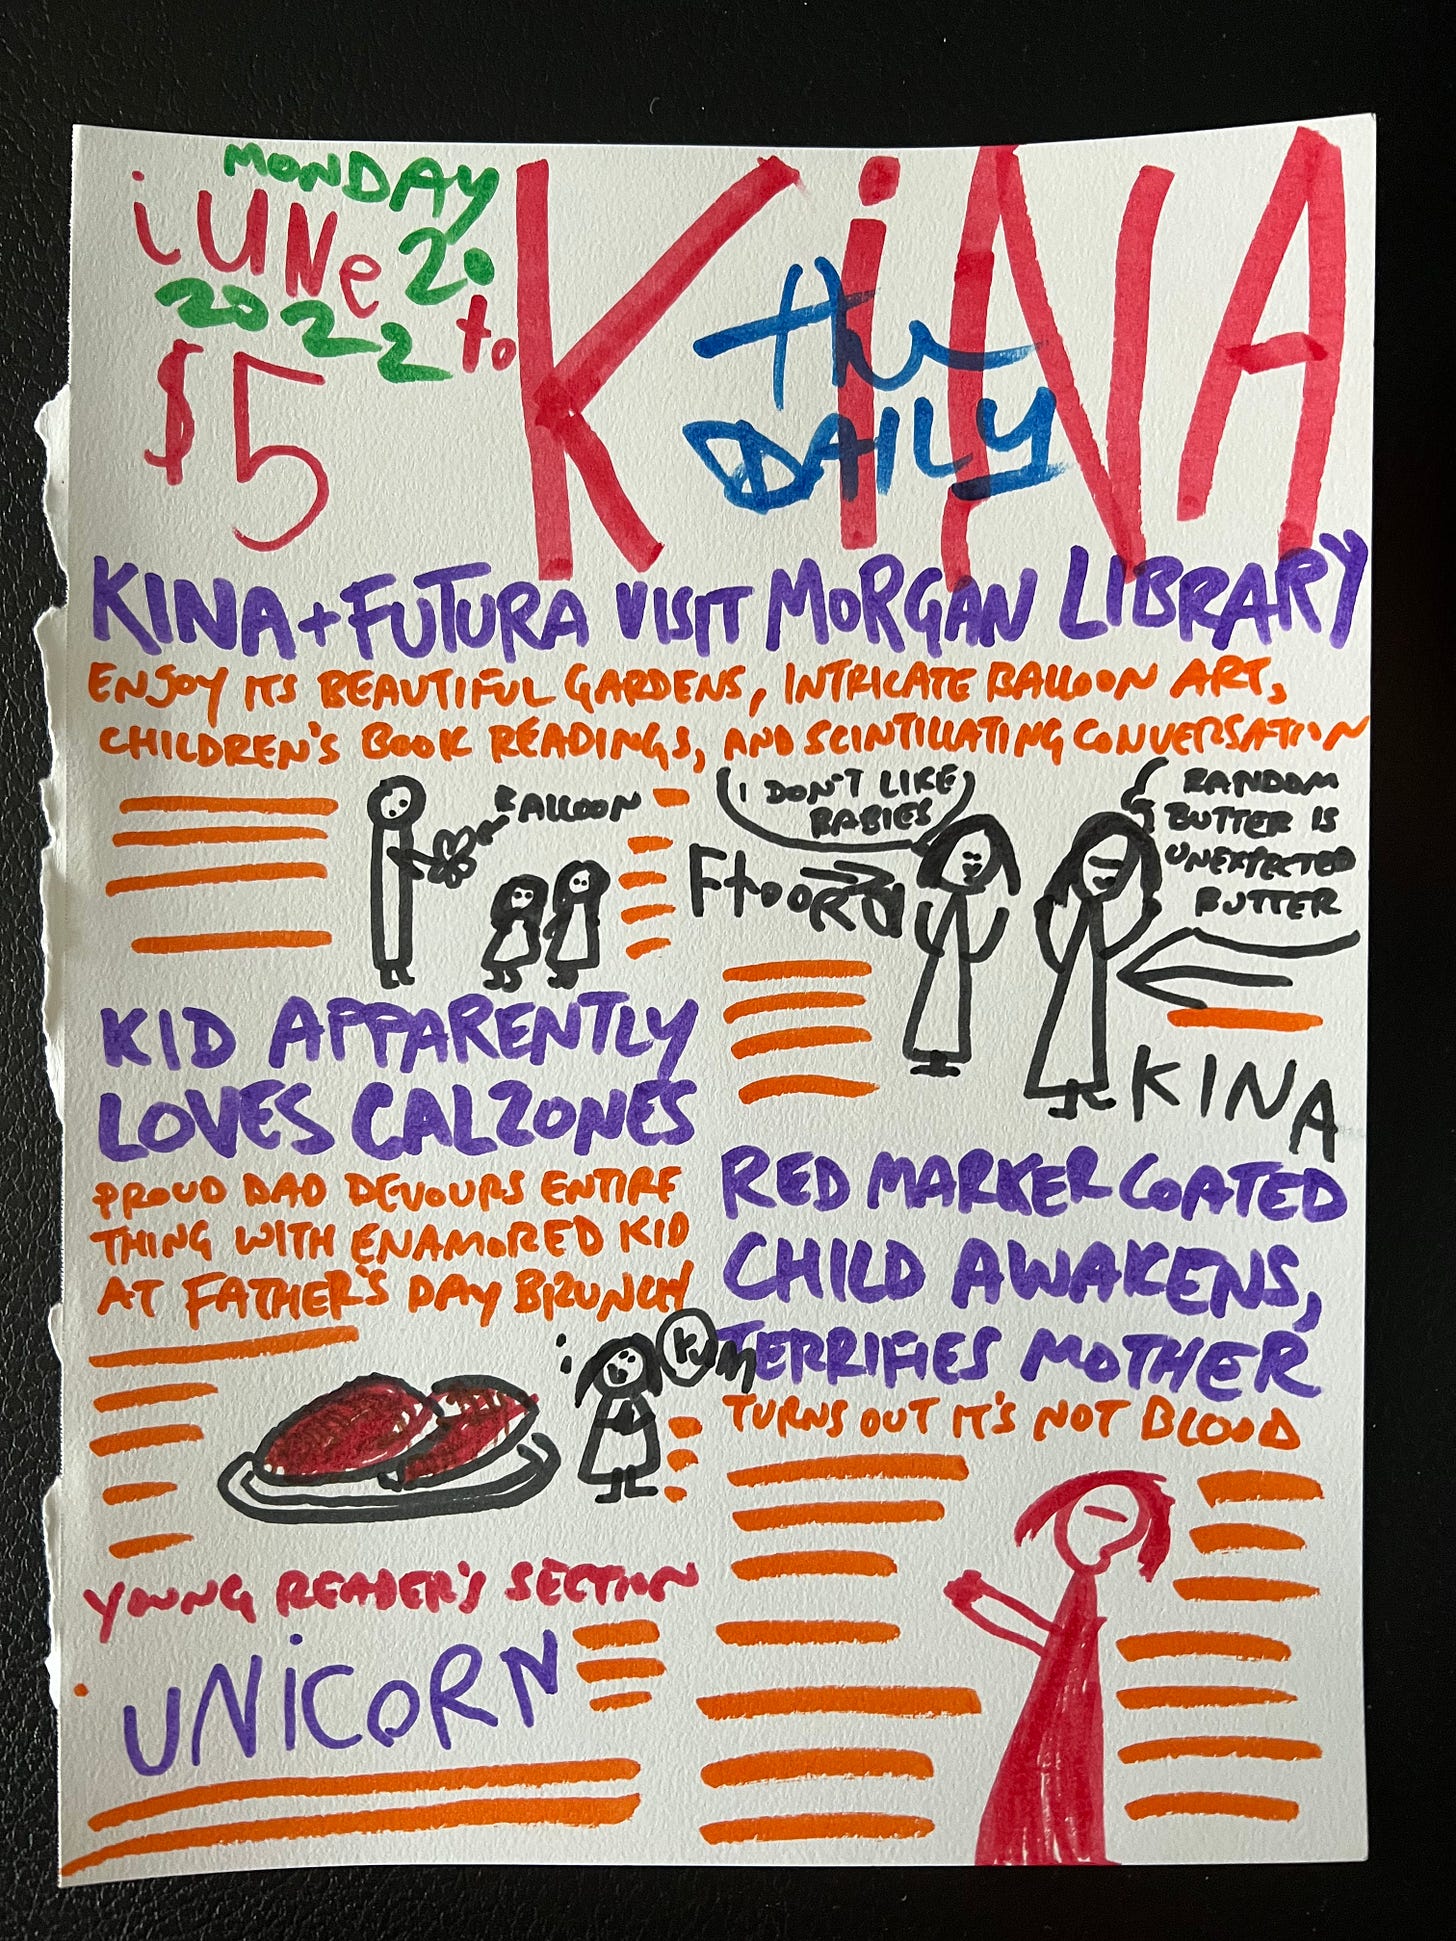 MONDAY
iUNe 20
2022 to
$5
the
DAILY
KiNA
KINA + FUTURA VISIT MORGAN LIBRARY
ENJOY ITS BEAUTIFUL GARDENS, INTRICATE BALLOON ART,
CHILDREN'S BOOK READINGS, AND SCINTILLATING CONVERSATION
BALLOON
I DON'T LIKE
BABIES
RANDOM
BUTTER IS
UNEXPECTED
BUTTER
KINA
KID APPARENTLY
LOVES CALZONES
PROUD DAD DEVOURS ENTIRE
THING WITH ENAMORED KID
AT FATHER'S DAY BRUNCH
RED MARKER COATED
CHILD AWAKENS,
TERRIFIES MOTHER
TURNS OUT IT'S NOT BLOOD
YOUNG READER'S SECTION
UNiCORN